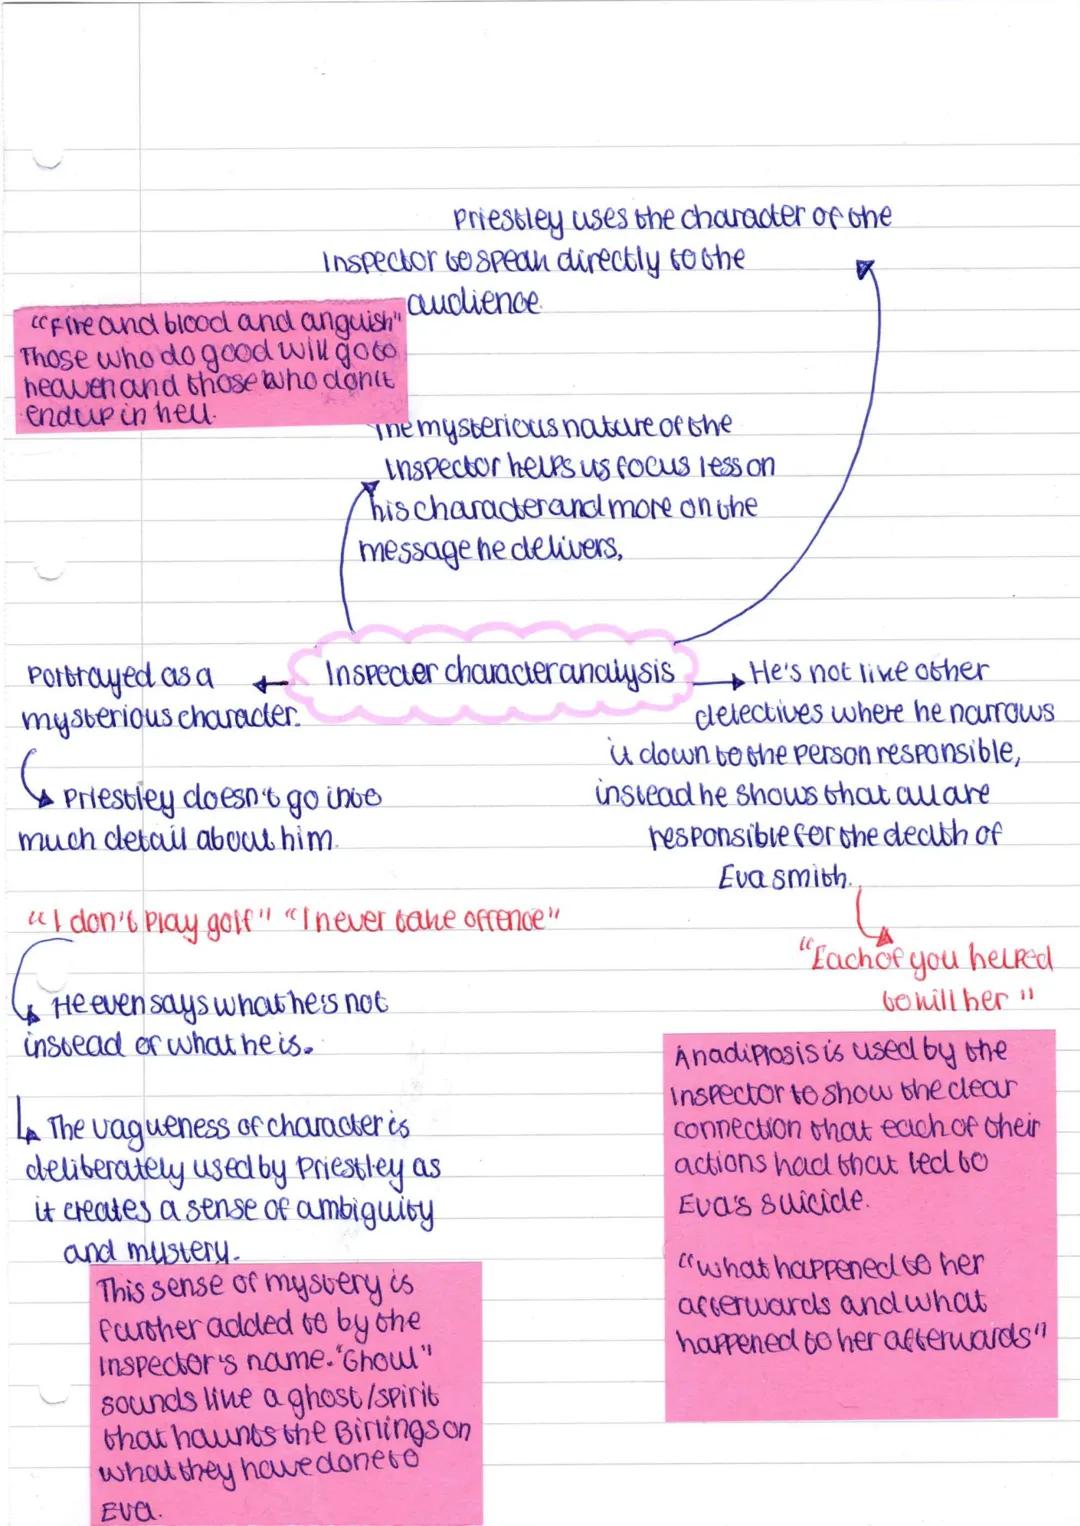 Priestley uses the character of the
Inspector to speak directly to the
audience.
"Fire and blood and anguish"
Those who do good will go to
heaven and those who don't
end up in hell.
The mysterious nature of the
Inspector helps us focus less on
his character and more on the
message he delivers,
Inspecter character analysis
Portrayed as a
mysterious character.
Priestley doesn't go into
much detail about him.
"I don't play golf" "I never take offence"
He even says what he's not
instead of what he is.
The vagueness of character is
deliberately used by Priestley as
it creates a sense of ambiguity
and mystery.
This sense of mystery is
further added to by the
Inspector's name. "Ghoul"
sounds like a ghost/spirit
that haunts the Birlings on
what they have done to
Eva.
He's not like other
detectives where he narrows
it down to the person responsible,
instead he shows that all are
responsible for the death of
Eva smith.
"Each of you helped
to kill her"
Anadiplosis is used by the
Inspector to show the clear
connection that each of their
actions had that led to
Eva's suicide.
"what happened to her
afterwards and what
happened to her afterwards"